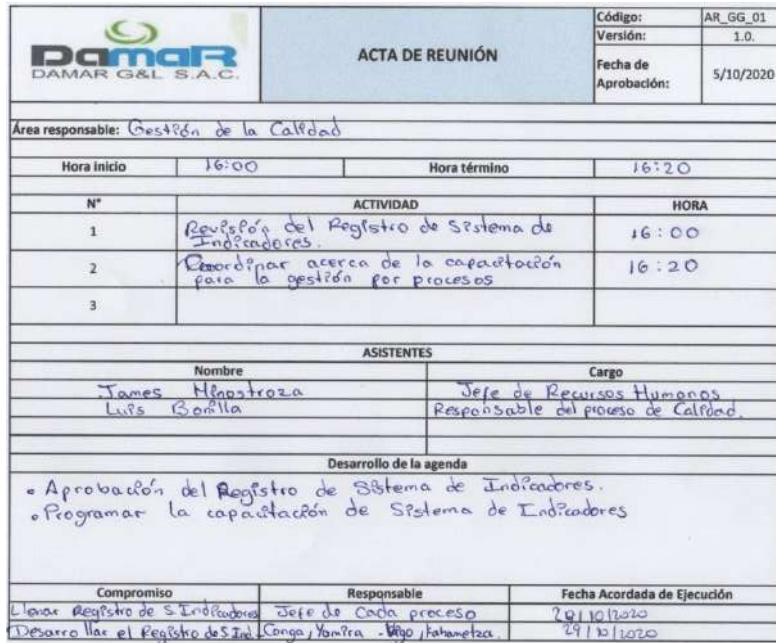 DamaR
DAMAR G&L S.A.C.
ACTA DE REUNIÓN
Código: AR_GG_01
Versión: 1.0.
Fecha de Aprobación: 5/10/2020
Área responsable: Gestión de la Calidad
Hora inicio 16:00 Hora término 16:20
N° ACTIVIDAD HORA
1 Revisión del Registro de Sistema de Indicadores. 16:00
2 Coordinar acerca de la capacitación para la gestión por procesos 16:20
3
ASISTENTES
Nombre Cargo
James Hinostroza Jefe de Recursos Humanos
Luis Bonilla Responsable del proceso de Calidad.
Desarrollo de la agenda
• Aprobación del Registro de Sistema de Indicadores.
• Programar la capacitación de Sistema de Indicadores
Compromiso Responsable Fecha Acordada de Ejecución
Llenar Registro de S. Indicadores Jefe de Cada proceso 29/10/2020
Desarrollar el Registro de S. Ind. Conga, Yamira - 29/10/2020